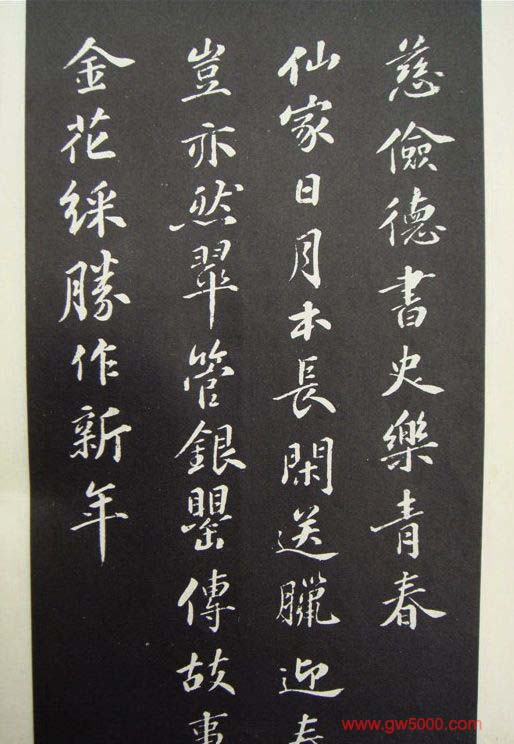 慈儉德書史樂青春
仙家日月本長閑送臘迎春
豈亦然翠管銀罌傳故事
金花綵勝作新年
www.gw5000.com